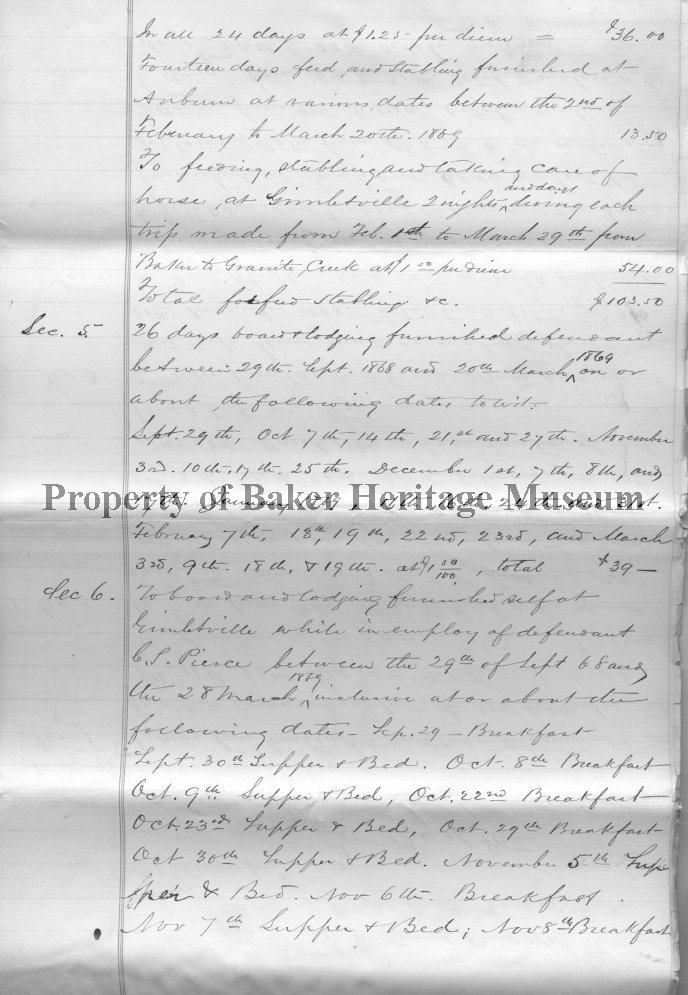 In all 24 days at $1.25 per diem = $36.00
Fourteen days feed, and stabling furnished at
Auburn at various, dates between the 2nd of
February to March 20th. 1869 13.50
To feeding, stabling and taking care of
horse, at Gimletville 2 nights and days during each
trip made from Feb. 1st to March 29th from
Baker to Granite Creek at $1 50 per diem 54.00
Total for feed stabling &c. $103.50
Sec. 5. 26 days board & lodging furnished defendant
between 29th. Sept. 1868 and 20th March 1869 on or
about, the following dates to wit:
Sept. 29th, Oct 7th, 14th, 21st and 27th. November
3rd. 10th. 17th. 25th. December 1st, 7th, 8th, and
Property of Baker Heritage Museum
February 7th, 18th, 19th, 22nd, 23rd, and March
3rd, 9th. 18th, & 19th. at $1 50/100, total $39—
Sec 6. To board and lodging furnished self at
Gimletville while in employ of defendant
C. S. Pierce between the 29th of Sept 68 and
the 28 March 1869 inclusive at or about the
following dates— Sep. 29 — Breakfast
Sept. 30th Supper & Bed. Oct. 8th Breakfast
Oct. 9th Supper & Bed, Oct. 22nd Breakfast
Oct. 23rd Supper & Bed, Oct. 29th Breakfast
Oct 30th Supper & Bed. November 5th Sup
per & Bed. Nov 6th. Breakfast.
Nov 7th Supper & Bed; Nov 8th Breakfast